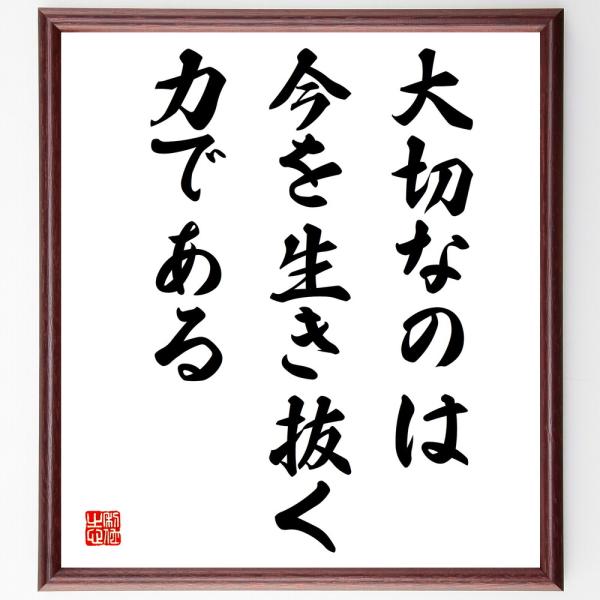 大切なのは
今を生き抜く
力である